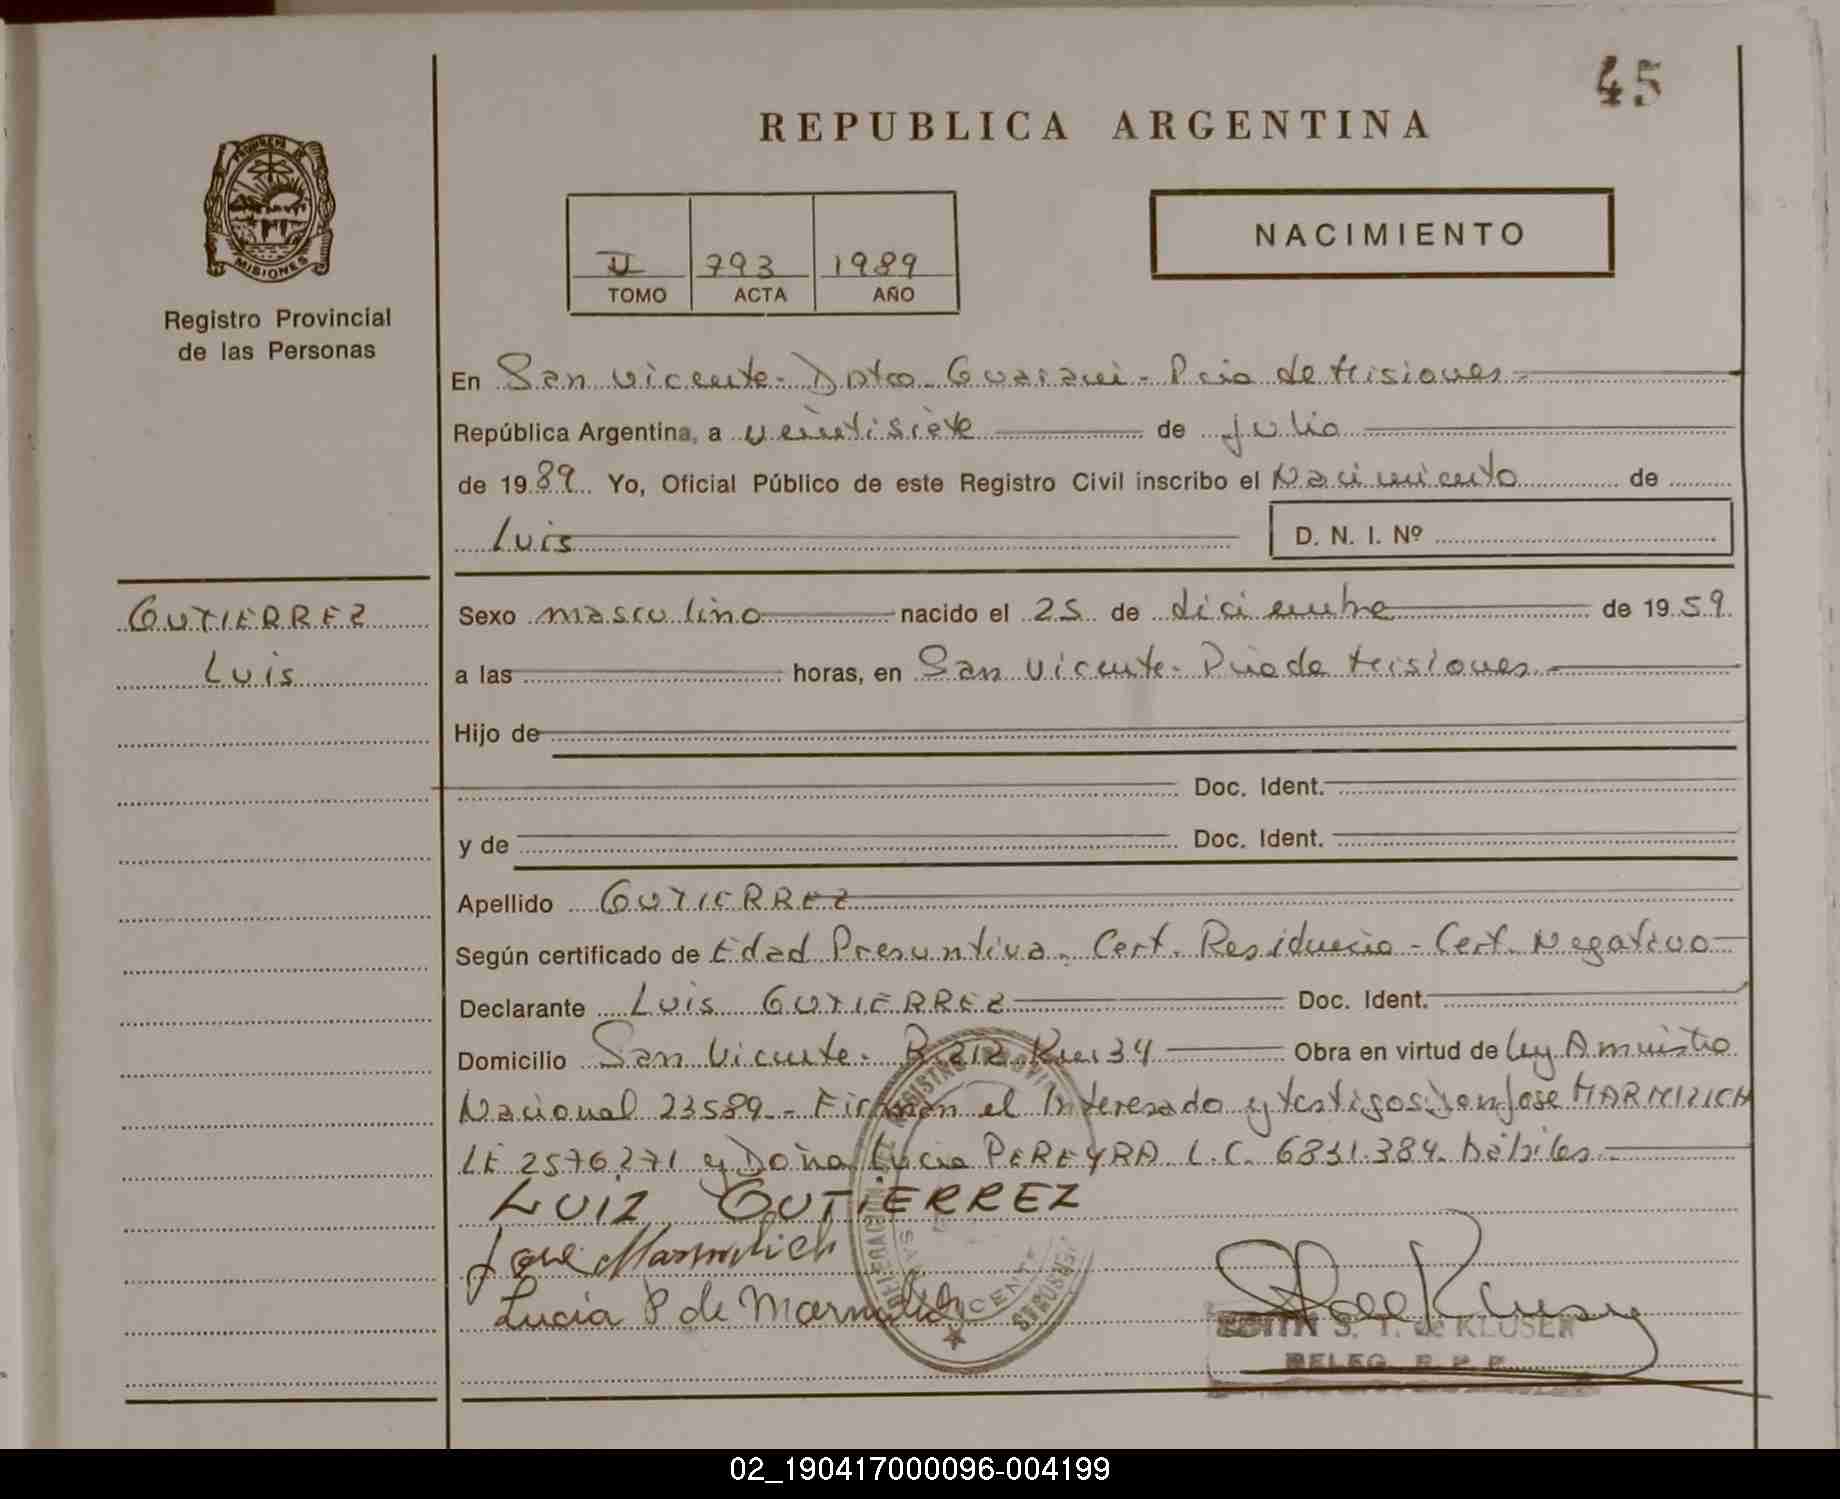 45
REPUBLICA ARGENTINA
PROVINCIA DE
MISIONES
Registro Provincial
de las Personas
II 793 1989
TOMO ACTA AÑO
NACIMIENTO
En San Vicente - Dpto Guarani - Pcia de Misiones
República Argentina, a veintisiete de Julio
de 1989. Yo, Oficial Público de este Registro Civil inscribo el Nacimiento de
Luis D. N. I. Nº
GUTIERREZ
Luis
Sexo masculino nacido el 25 de diciembre de 1959.
a las horas, en San Vicente - Pcia de Misiones
Hijo de
Doc. Ident.
y de Doc. Ident.
Apellido GUTIERREZ
Según certificado de Edad Presuntiva - Cert. Residencia - Cert. Negativo
Declarante Luis GUTIERREZ Doc. Ident.
Domicilio San Vicente - R 212 Km 34 Obra en virtud de Ley Amnistia
Nacional 23589 - Firman el Interesado y testigos Jose MARMILICH
LE 2576271 y Doña Lucia PEREYRA L.C. 6831.384. Hábiles
LUIZ GUTIERREZ
Jose Marmilich
Lucia P de Marmilich
S. T. de KLUSER
DELEG. R. P. P.
02_190417000096-004199